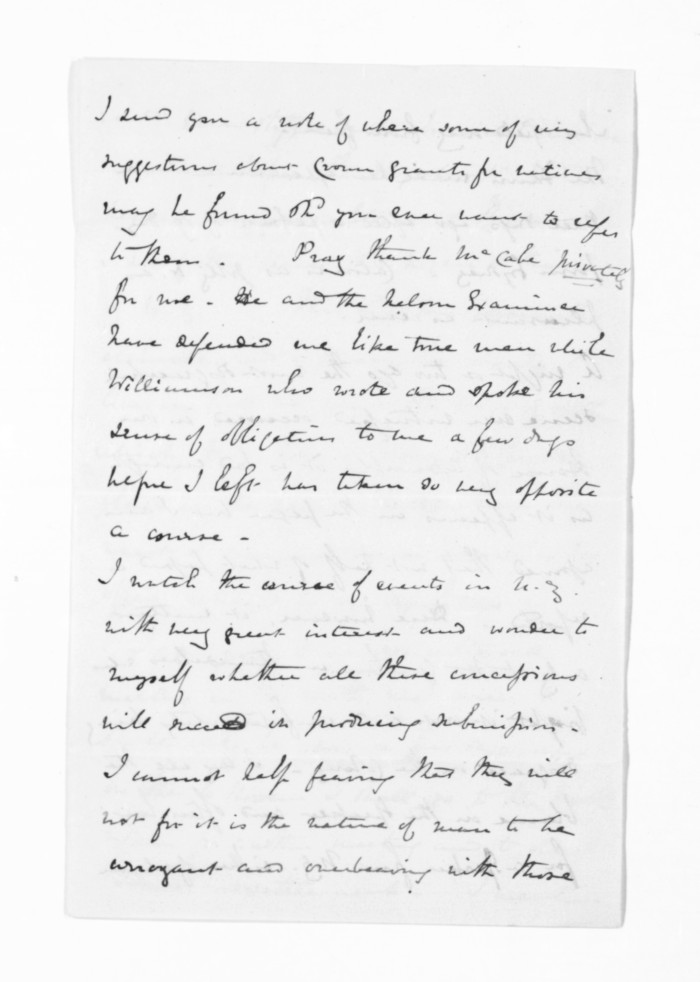 I send you a note of where some of my
suggestions about Crown grants for natives
may be found shd you ever want to refer
to them. Pray thank McCabe privately
for me - He and the Nelson Examiner
have defended me like true men while
Williamson who wrote and spoke his
sense of obligation to me a few days
before I left has taken so very opposite
a course -
I watch the course of events in N.Z.
with very great interest and wonder to
myself whether all these concessions
will succeed in producing submission -
I cannot help fearing that they will
not for it is the nature of man to be
arrogant and overbearing with those